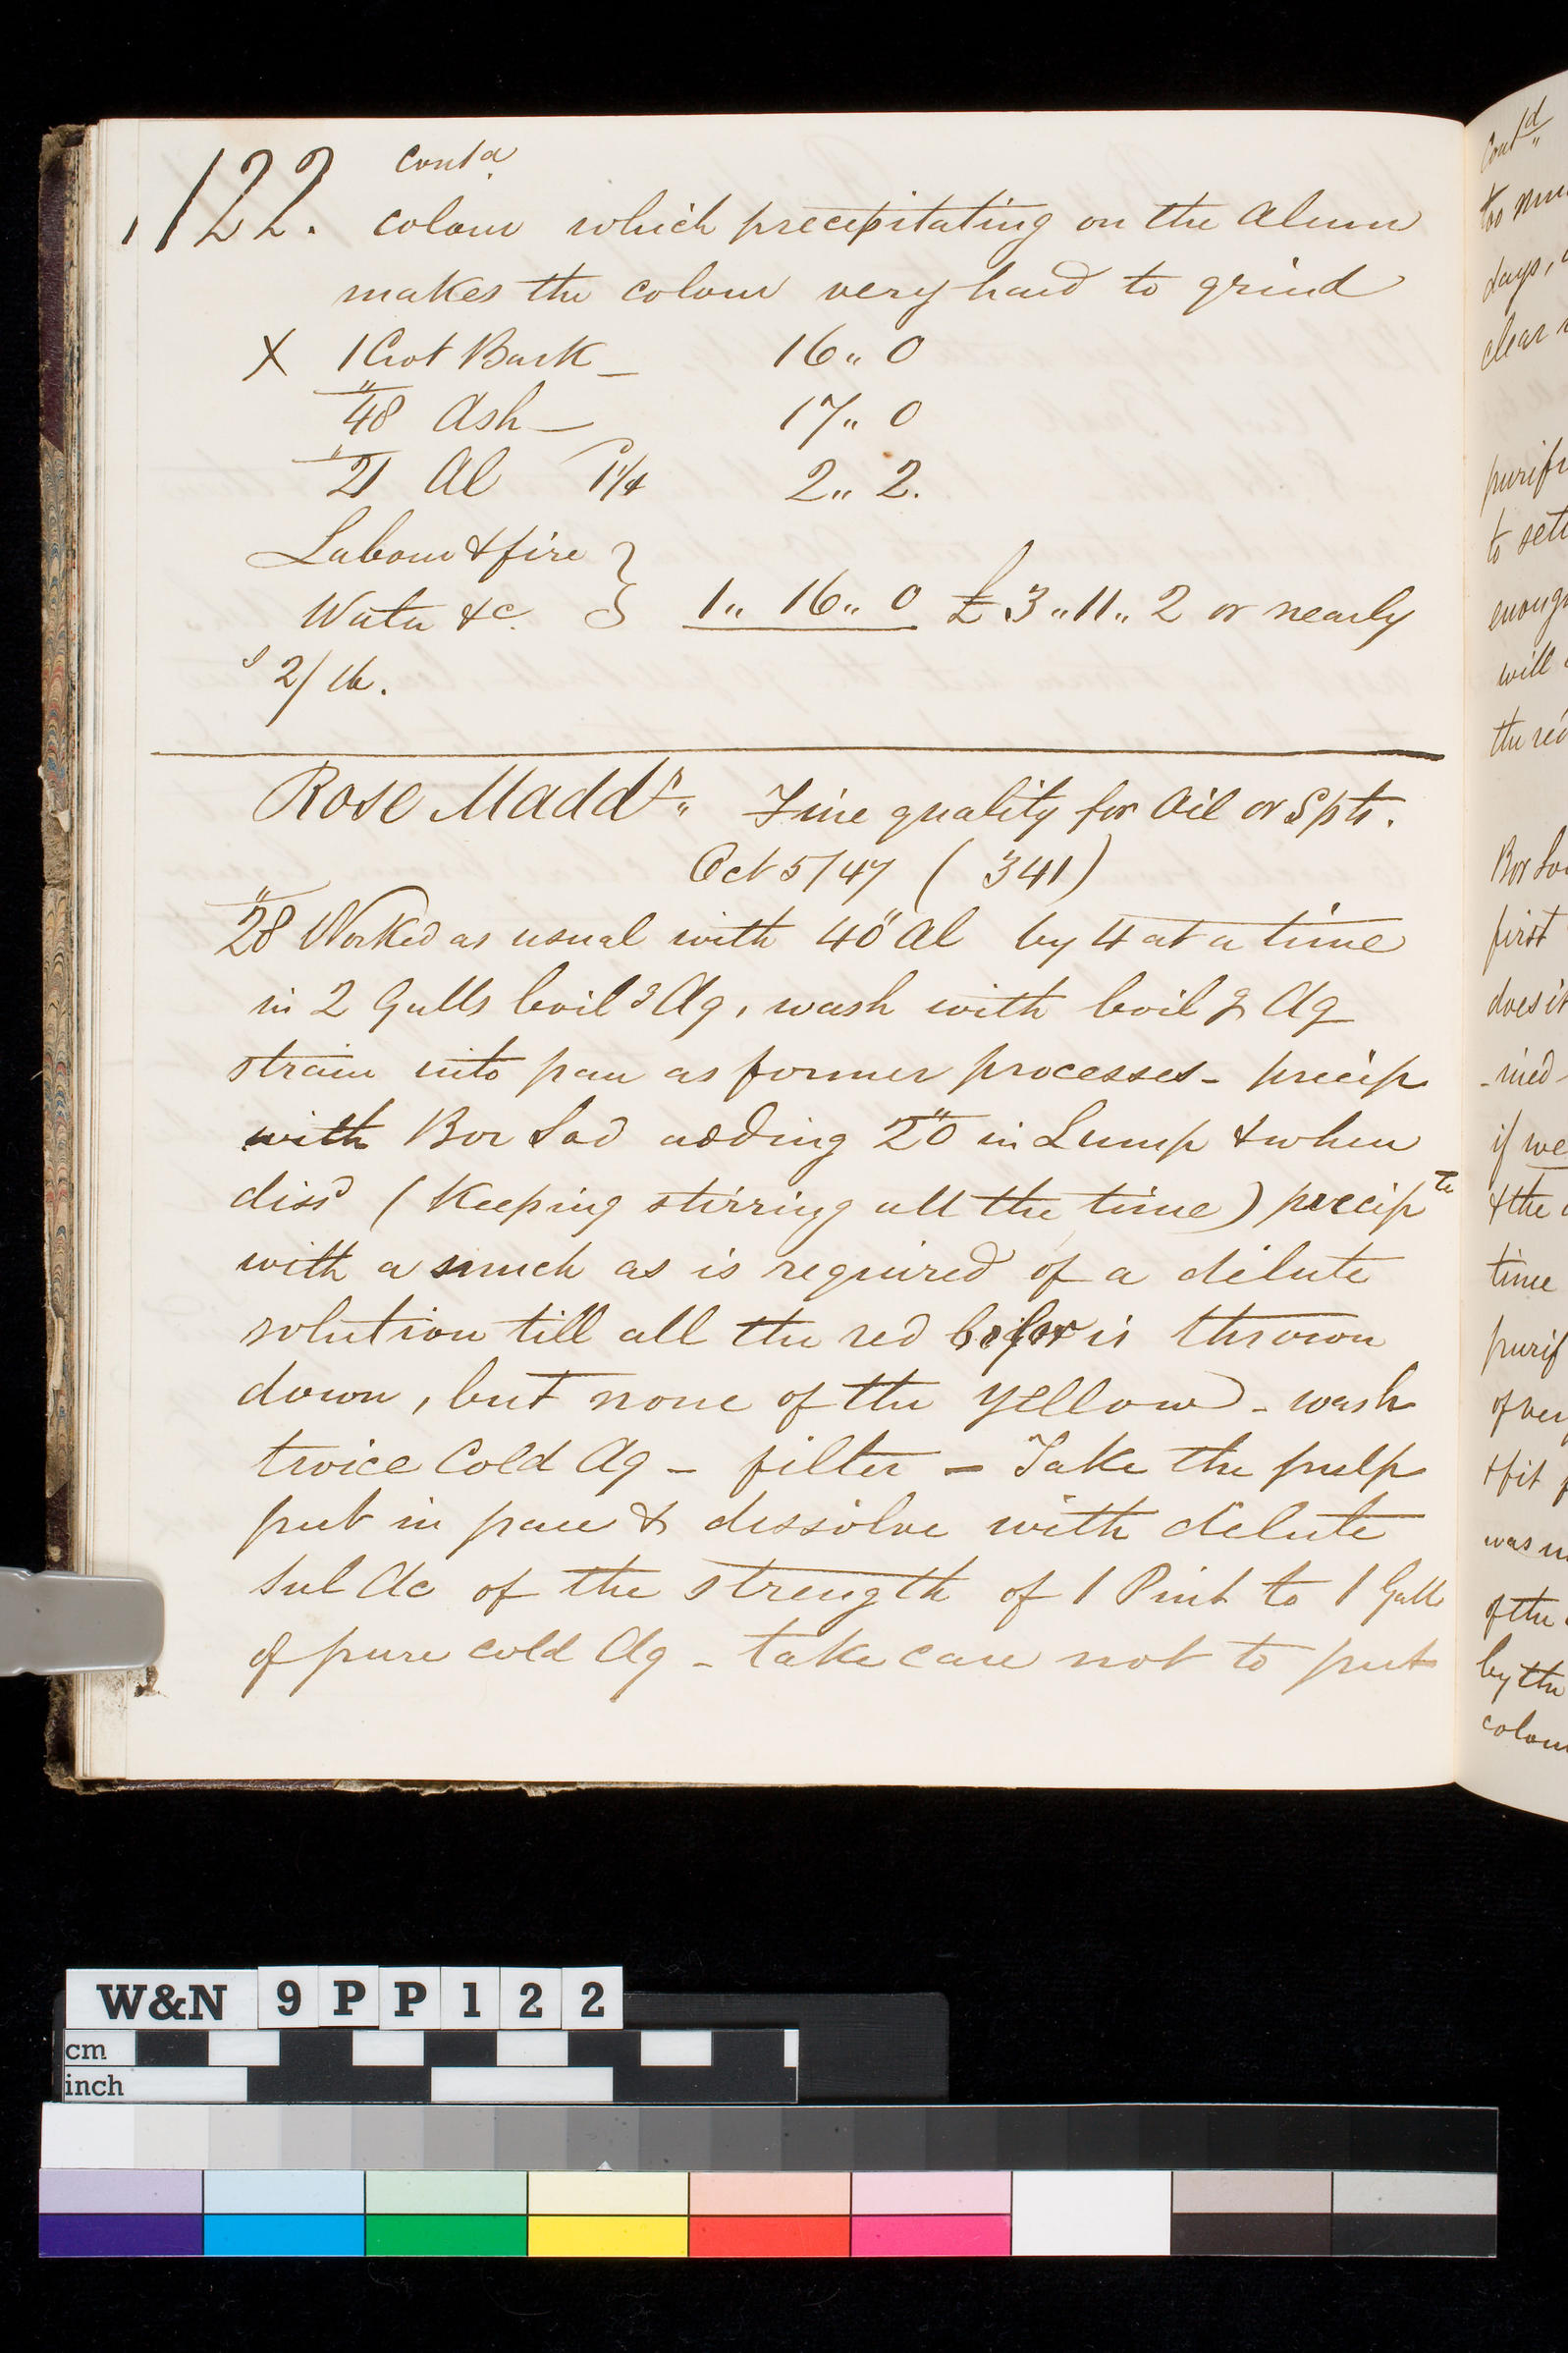 122. Contd
colour which precipitating on the Alum
makes the colour very hard to grind
X 1 Cwt Bark _ 16 ,, 0
48 Ash _ 17 ,, 0
21 Al 1 1/4 2 ,, 2.
Labour & fire }
Water &c. } 1 ,, 16 ,, 0 £3 ,, 11 ,, 2 or nearly
2/ lb.
Rose Maddr ,, Fine quality for Oil or Spts.
Oct 5/47 (341)
28 Worked as usual with 40 Al by 4 at a time
in 2 Galls boilg Aq, wash with boilg Aq
strain into pan as former processes - precip
with Bor Sod adding 20 in Lump & when
dissd (Keeping stirring all the time) precipte
with a much as is required of a dilute
solution till all the red is thrown
down, but none of the yellow - wash
twice Cold Aq - filter - Take the pulp
put in pan & dissolve with dilute
Sul Ac of the strength of 1 Pint to 1 Gall
of pure cold Aq - take care not to put
Contd
days,
clear
purif
to
enoug
will
the red
Bor So
first
does it
-ined
if we
& the
time
purif
of ver
& fit
was
of the
by the
colou
W&N 9PP122
cm
inch